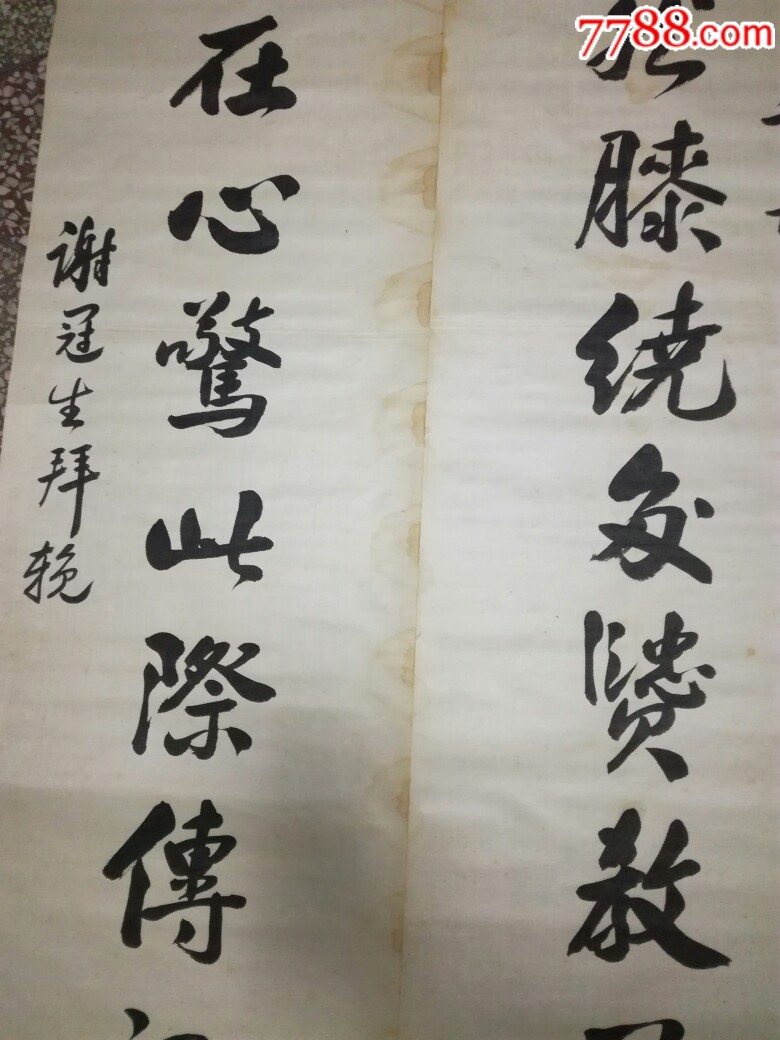 7788.com
膝绕多賢教
在心驚此際傳
謝冠生拜輓